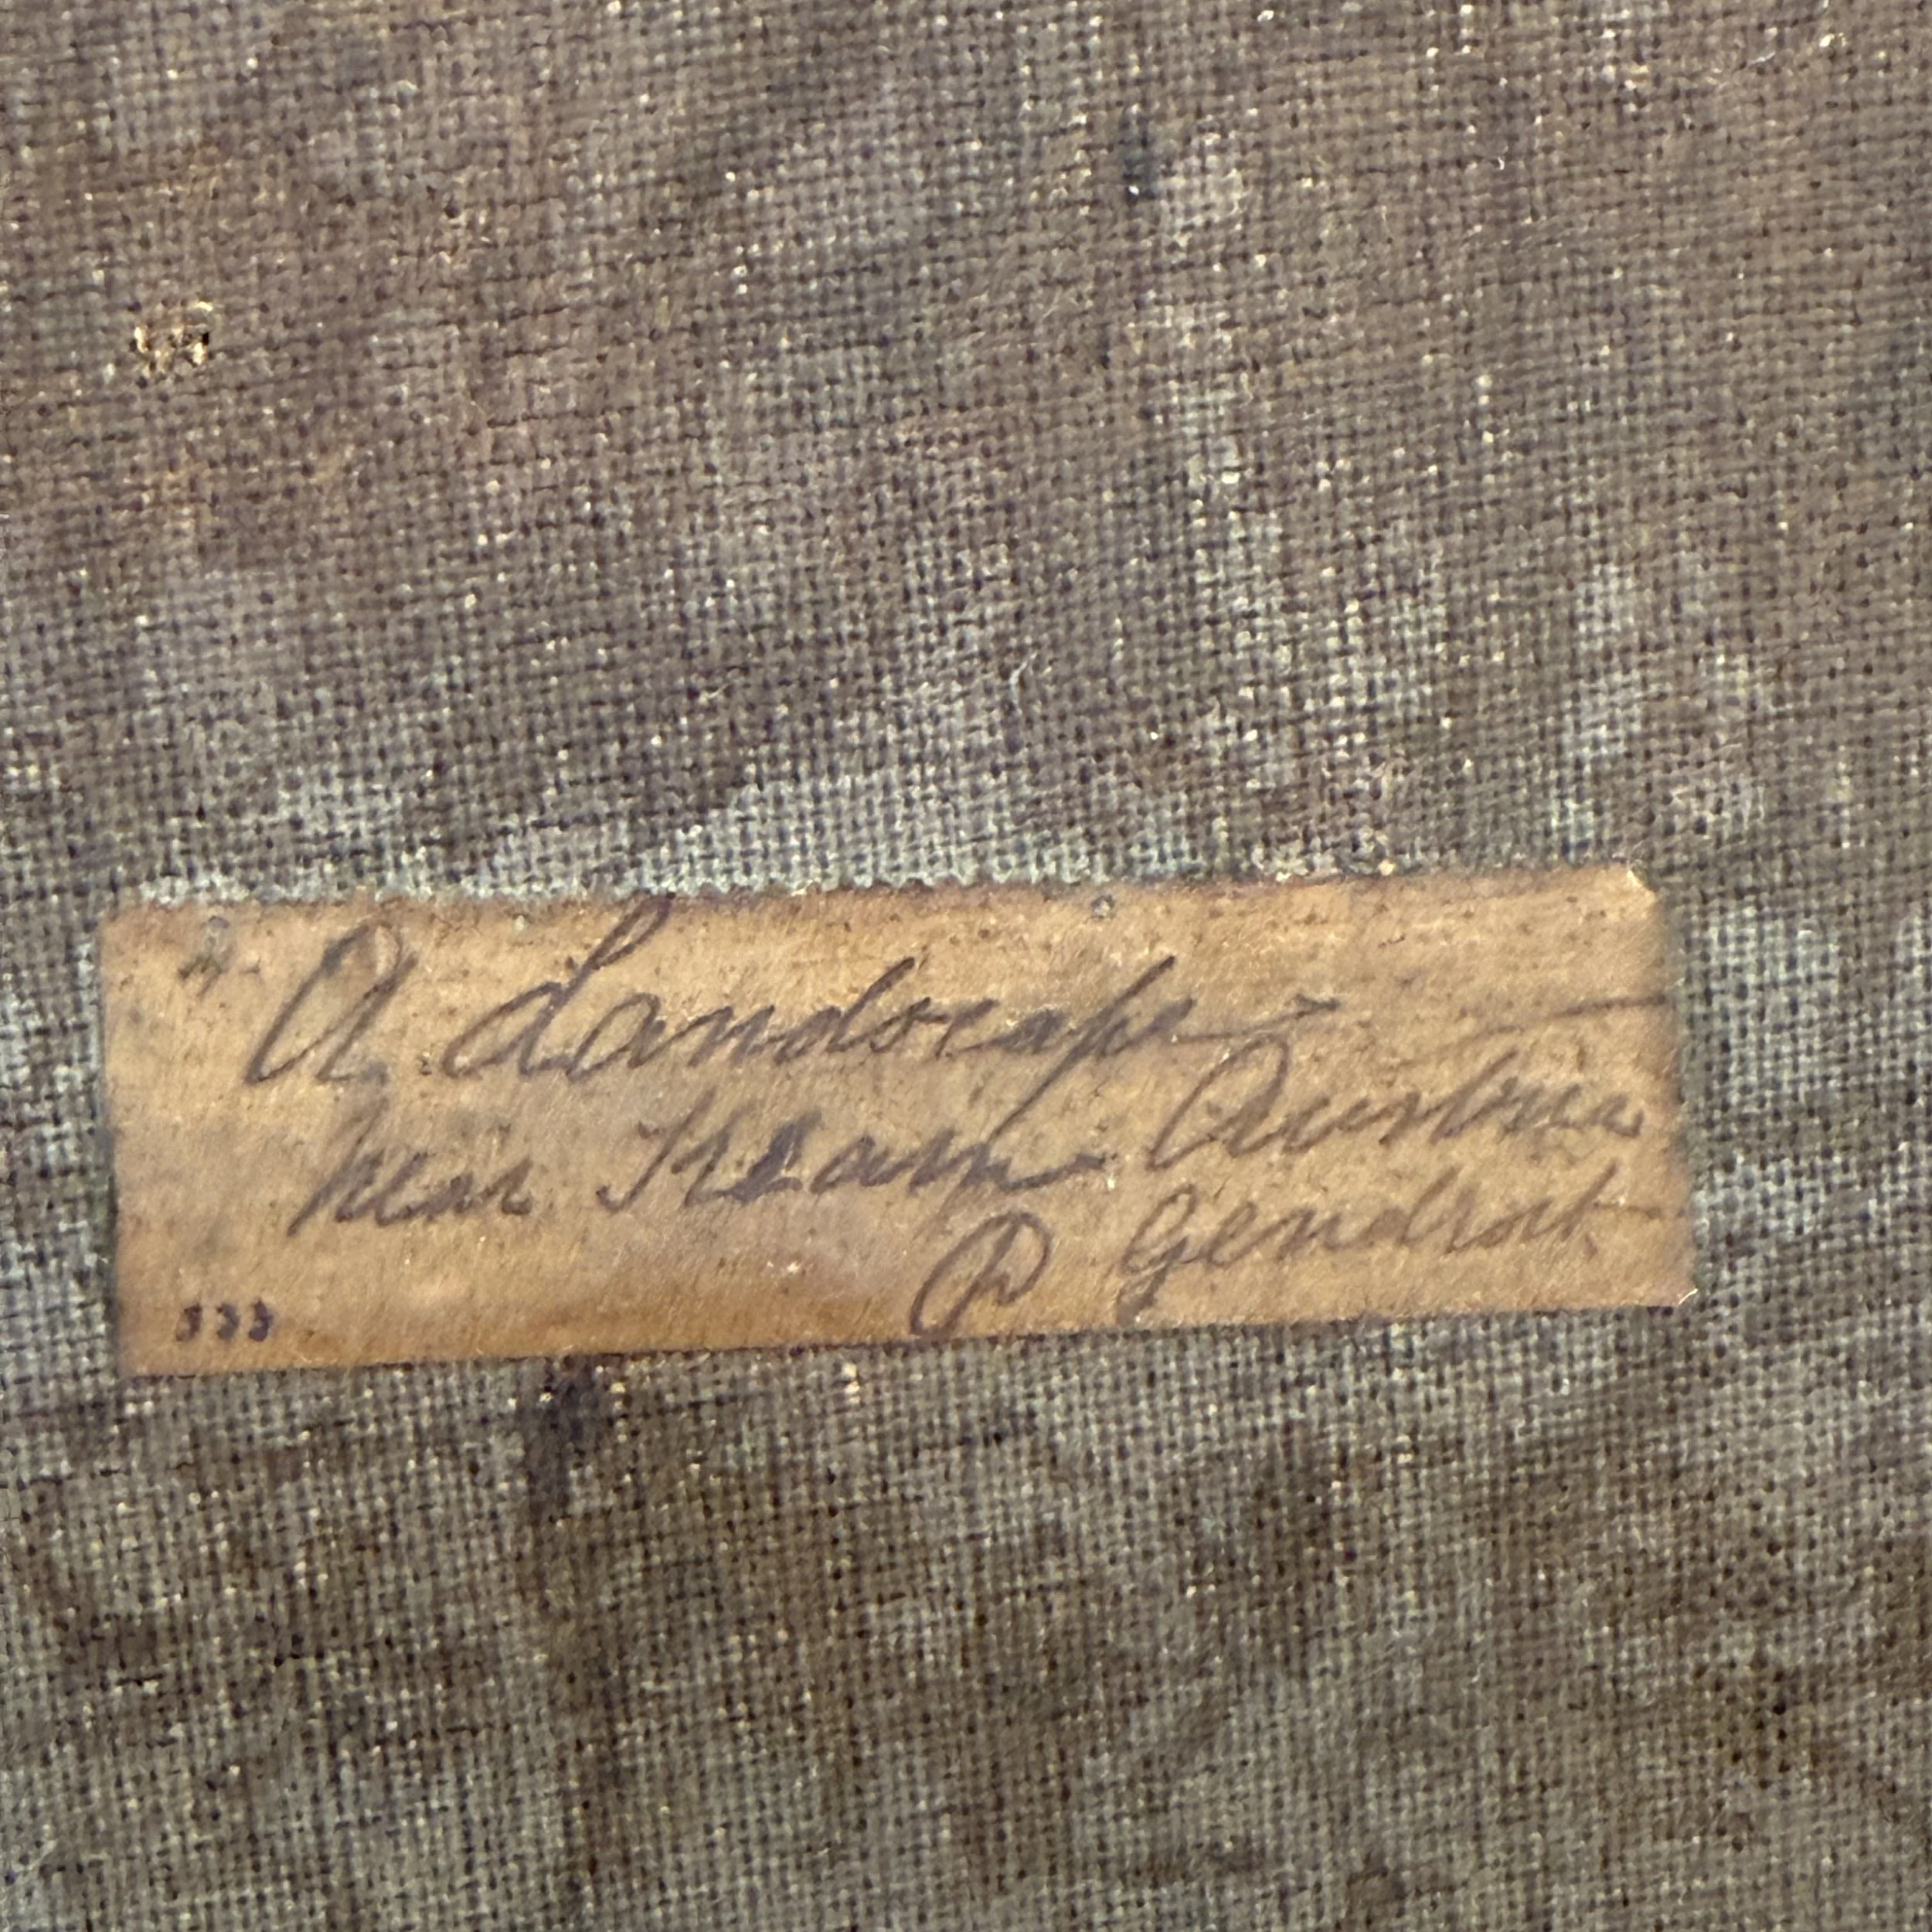 "A Landscape
Near Kram Austria
P Gendrot
533